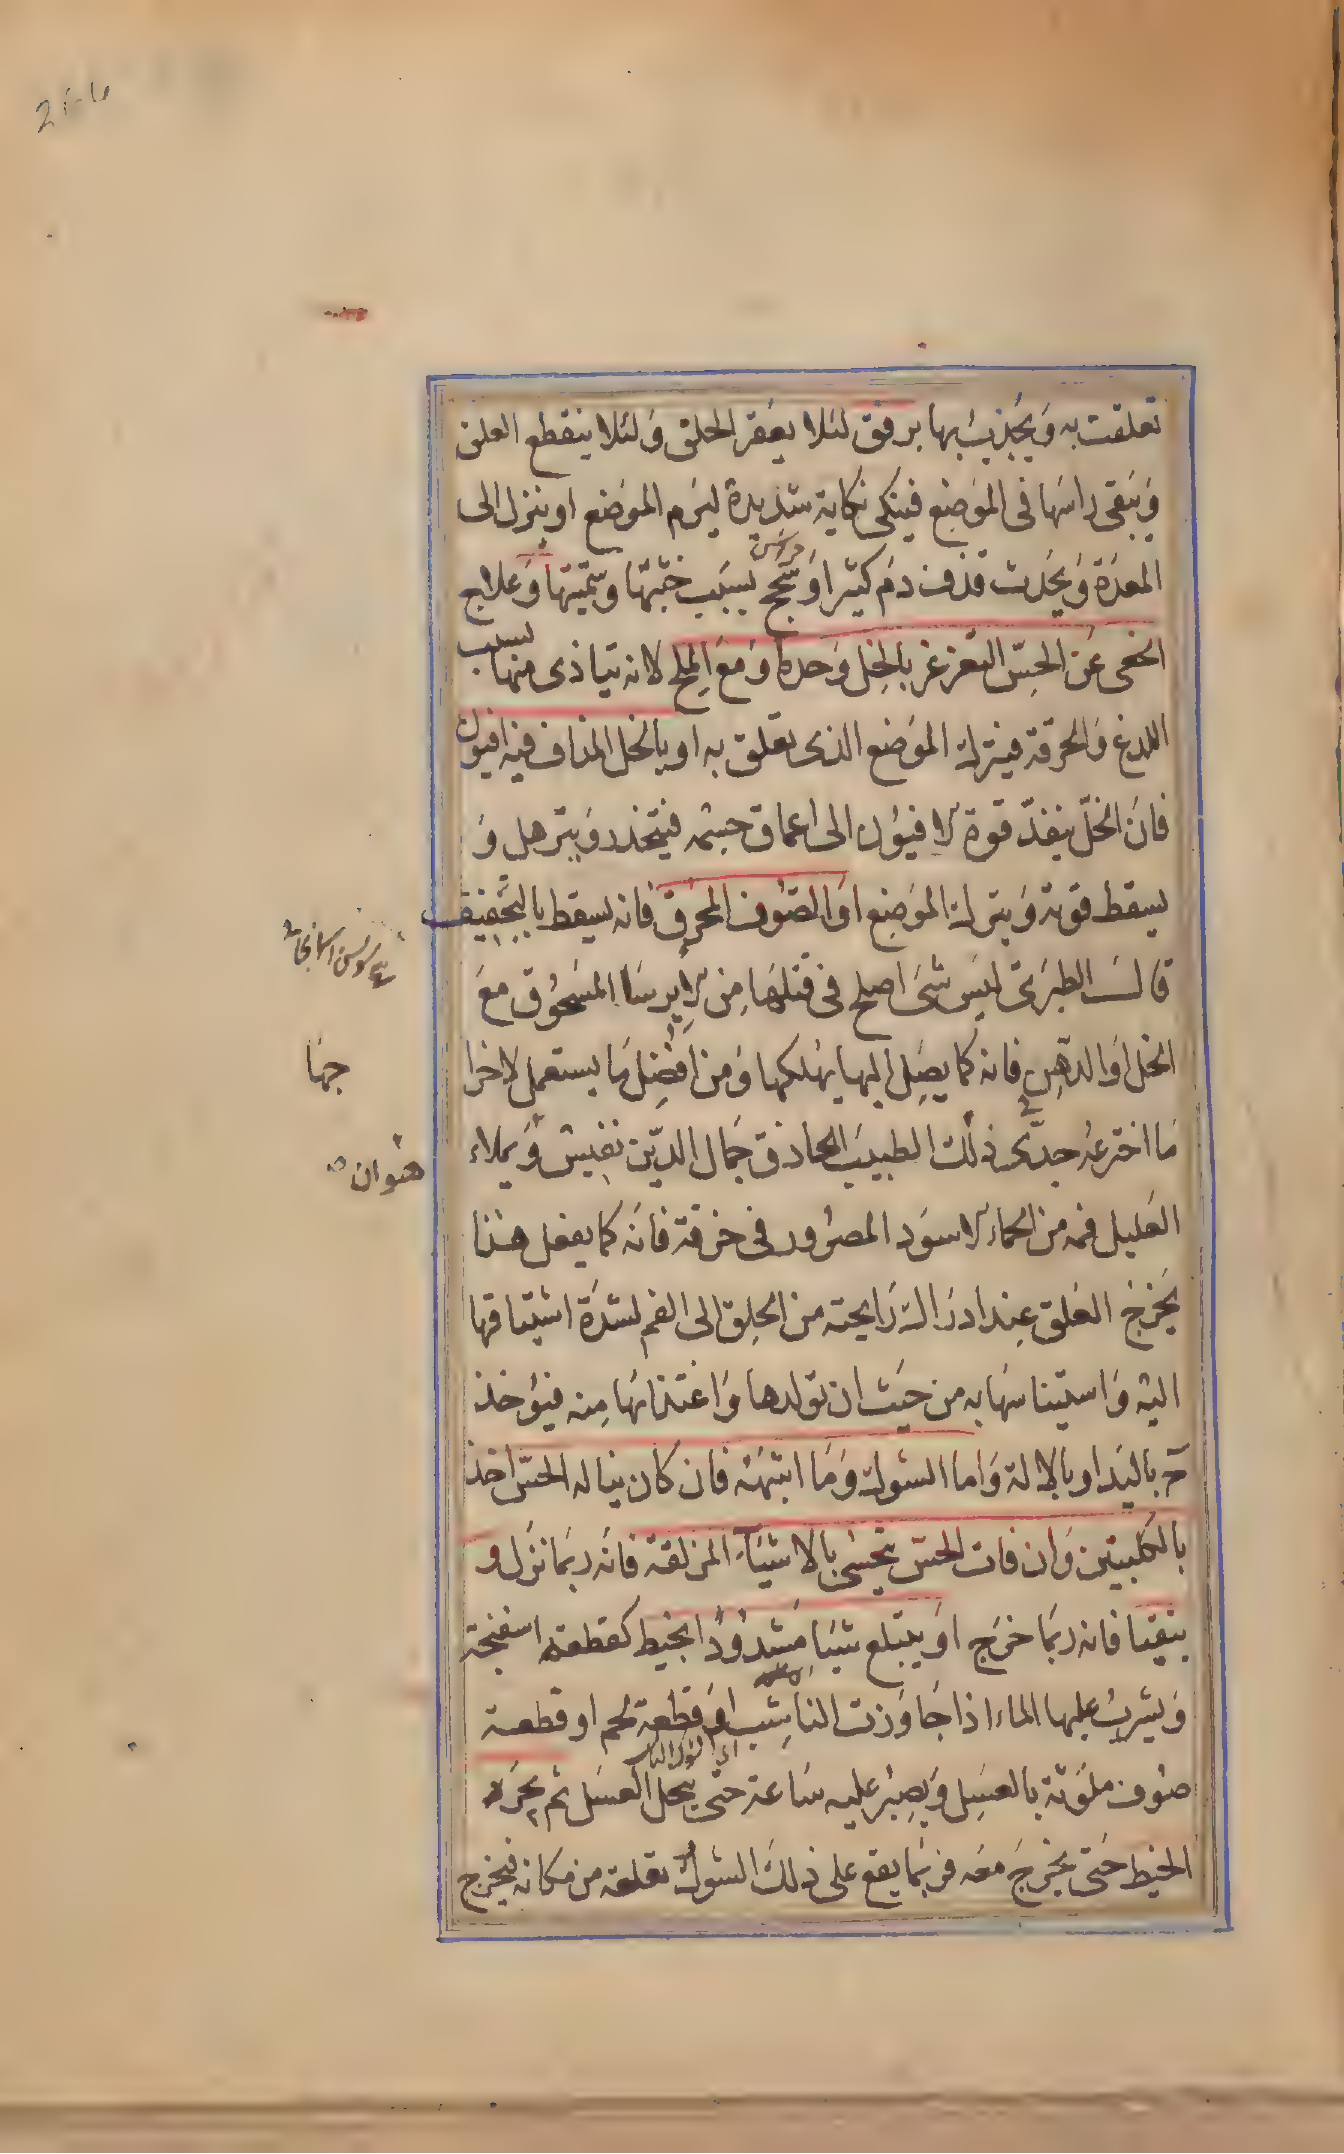 تعلقت به وَيُجذبُ بها برفق لئلا يعقر الحلق وَلئلا ينقطع العلق
وَيبقى راسَها فى الموَضِع فينكى نكاية شديدة ليَرم الموَضع او ينزل الى
المعدَة وَيحَدث قذف دَم كثير اوَ سَحج بسبَب خبثها وسمّيتها وَعلاج
الخفى عَن الحِسّ التغرغر بالخل وَحده اوَ مَع الملح لانه يتاذى منها بسبب
اللدغ وَالحرقة فيترك الموَضع الذى تعلق به او بالخل المذاف فيه افيون
فان الخلّ ينفذّ قوة الافيون الى اعماق جسمه فيتخدر وَيترهل وَ
يسقط قوته وَيترك الموَضِع اوَ الصّوف المحرق فانه يسقط بالتجفيف
قال الطبَرىّ ليسَ شىَ اصلح فى قتلهَا مِن الايرسَا المسَحوُق مَع
الخل اوَ الدهن فانه كما يصَل اليها يهلكها وَمن افضل مَا يستعمل لاخرا
جهَا
مَا اخترعه جدّى ذلك الطبيبَ الحاذق جَمال الدّين نفيسَ وَ يملاء
هوان
العَليل فمه من الحماء الاسوَد المصرُور فى خرقة فانه كما يفعل هذا
يَخرجَ العَلق عِند ادرَاك رَايحته من الحلق الى الفم لشدَة اشتياقها
اليه وَاستيناسهَا به من حيَث ان تولدها وَاغتذائهَا مِنه فيؤخذ
ح باليَد او بالالة وَاما الشوك وَمَا اشبهَه فان كان يناله الحسّ اخذ
بالكلبتين وَان فات الحسّ يتحسى بالاشيَآء المزلقة فانه ربمَا نزل وَ
يتقيا فانه ربمَا خرَج اوَ يبتلع شيئا مَشدُودًا بخيط كقطعة اسفنجة
وَيشربُ عليها الماء اذا جَاوَزت الناشِب اوَ قطعة لحم او قطعة
صوُف ملوَثة بالعسَل وَيصبر عليه سَاعة حتى ينحل العسَل ثم يجرَ
الخيط حَتى يخرجَ معَه فربمَا يقع على ذلكَ الشوك تعلقه من مكانه فيخرج